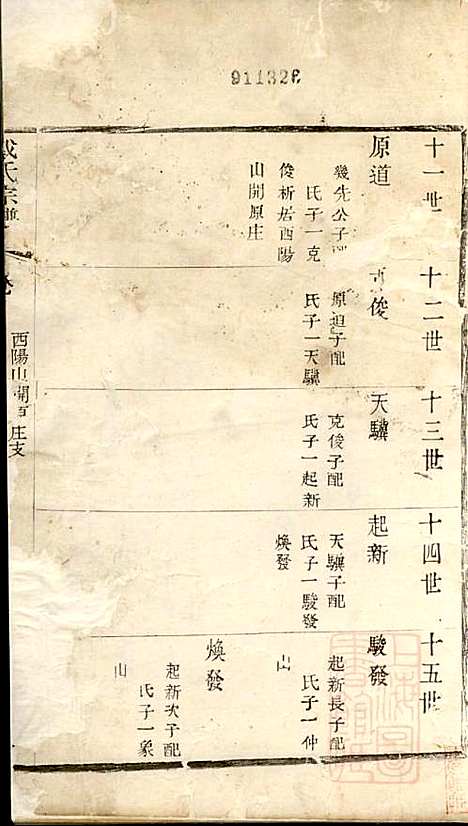 911326
十一世
原道
幾先公子配
氏子一克
俊析居酉陽
山開原庄
十二世
俊
原道子配
氏子一天驥
十三世
天驥
克俊子配
氏子一起新
十四世
起新
天驥子配
氏子一駿發
煥發
十五世
駿發
起新長子配
氏子一仲
山
煥發
起新次子配
氏子一象
山
氏宗譜
酉陽山開 庄支